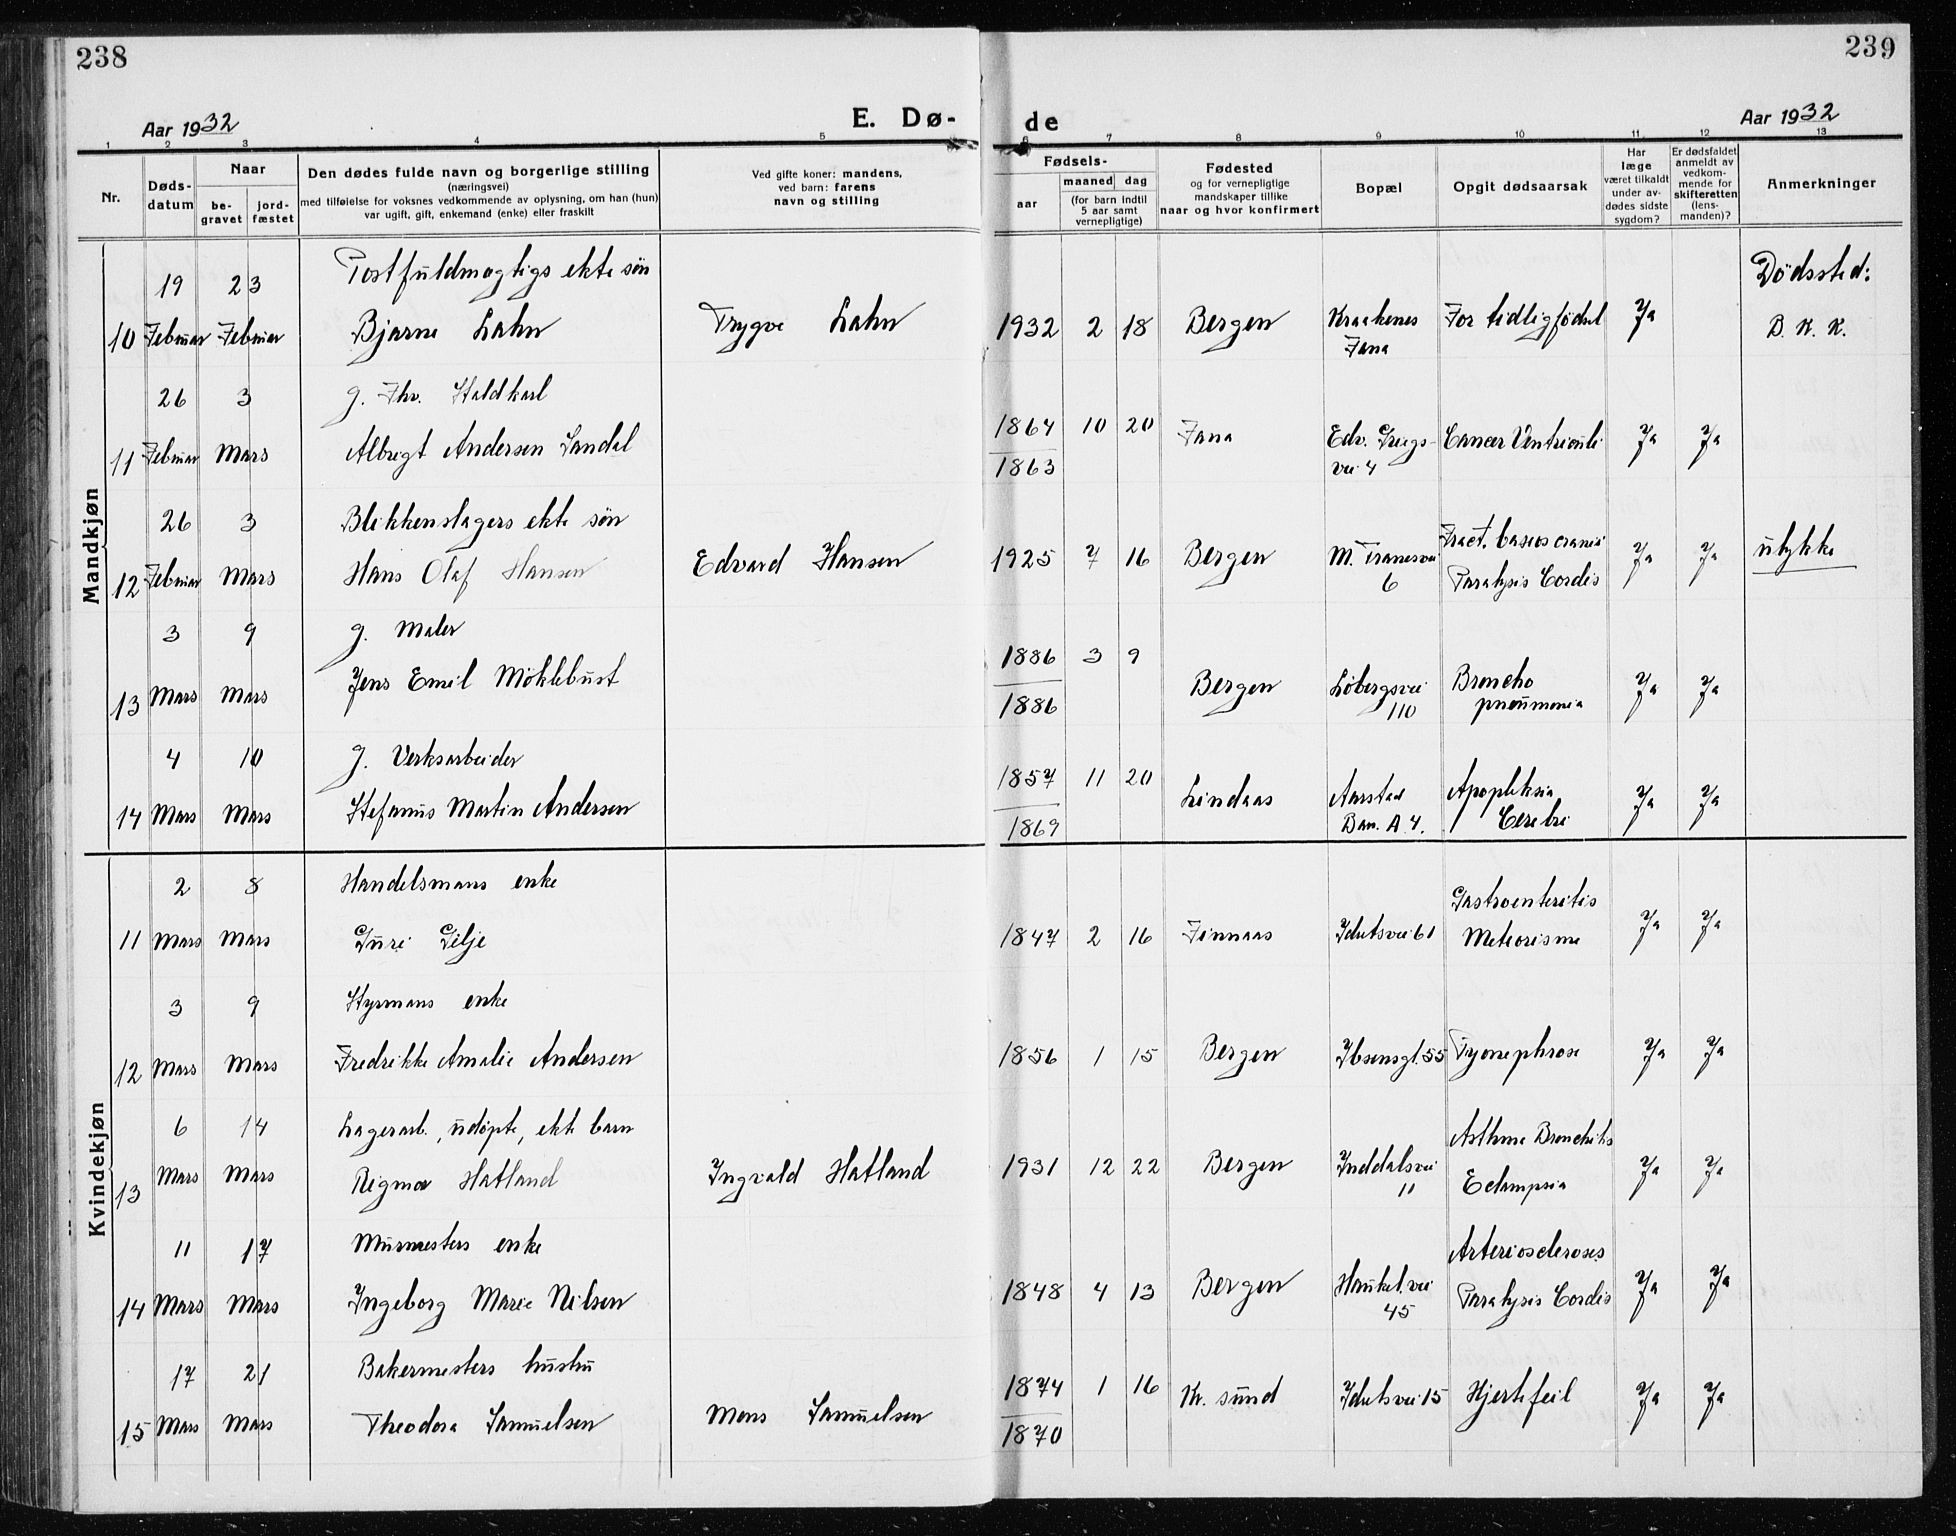 238
239
Aar 1932
E. Dø-
de
Aar 1932
1 2 3 4 5 6 7 8 9 10 11 12 13
Nr.
Døds-
datum
Naar
be-
gravet
jord-
fæstet
Den dødes fulde navn og borgerlige stilling
(næringsvei)
med tilføielse for voksnes vedkommende av oplysning, om han (hun)
var ugift, gift, enkemand (enke) eller fraskilt
Ved gifte koner: mandens,
ved barn: farens
navn og stilling
Fødsels-
aar
maaned dag
(for barn indtil
5 aar samt
vernepligtige)
Fødested
og for vernepligtige
mandskaper tillike
naar og hvor konfirmert
Bopæl
Opgit dødsaarsak
Har
læge
været tilkaldt
under av-
dødes sidste
sygdom?
Er dødsfaldet
anmeldt av
vedkom-
mende for
skifteretten
(lens-
manden)?
Anmerkninger
Mandkjøn
19 23 Postfuldmagtigs ekte søn Dödssted:
10 Februar Februar Bjarne Lahn Trygve Lahn 1932 2 18 Bergen Kraakenes For tidlig födsel Ja B. K. K.
Fana
26 3 g. Fhv. Staldkarl
1864 10 20
11 Februar Mars Albregt Andersen Sandal Fana Edv. Griegs- Cancer Ventriculi Ja Ja
1863 vei 4
26 3 Blikkenslagers ekte søn Fract. baseos cranii
12 Februar Mars Hans Olaf Hansen Edvard Hansen 1925 7 16 Bergen M. Tranesvei Ja Ja ulykke
6 Paralysis Cordis
3 9 g. Maler
1886 3 9
13 Mars Mars Jens Emil Möklebust Bergen Löbergsvei Broncho Ja Ja
1886 110 pneumonia
4 10 g. Verksarbeider
1857 11 20
14 Mars Mars Stefanus Martin Andersen Lindaas Aarstad Apopleksia Ja Ja
1869 Bar. A 4. Cerebri
Kvindekjøn
2 8 Handelsmans enke Gastroenteritis
11 Mars Mars Guri Gilje 1847 2 16 Finnaas Idrætsvei 61 Meteorisme Ja Ja
3 9 Styrmans enke
12 Mars Mars Fredrikke Amalie Andersen 1856 1 15 Bergen Ibsensgt. 55 Pyonephrose Ja Ja
6 14 Lagerarb., udøpte, ekte barn Asthma Bronchitis
13 Mars Mars Rigmor Hatland Ingvald Hatland 1931 12 22 Bergen Inddalsvei Ja Ja
11 Eclampsia
11 17 Murmesters enke Arteriosclerosis
14 Mars Mars Ingeborg Marie Nilsen 1848 4 13 Bergen Haukel. vei Paralysis Cordis Ja Ja
45
17 21 Bakermesters hustru
1874 1 16
15 Mars Mars Theodora Samuelsen Mons Samuelsen Kr. sund Idrætsvei 15 Hjertefeil Ja Ja
1870